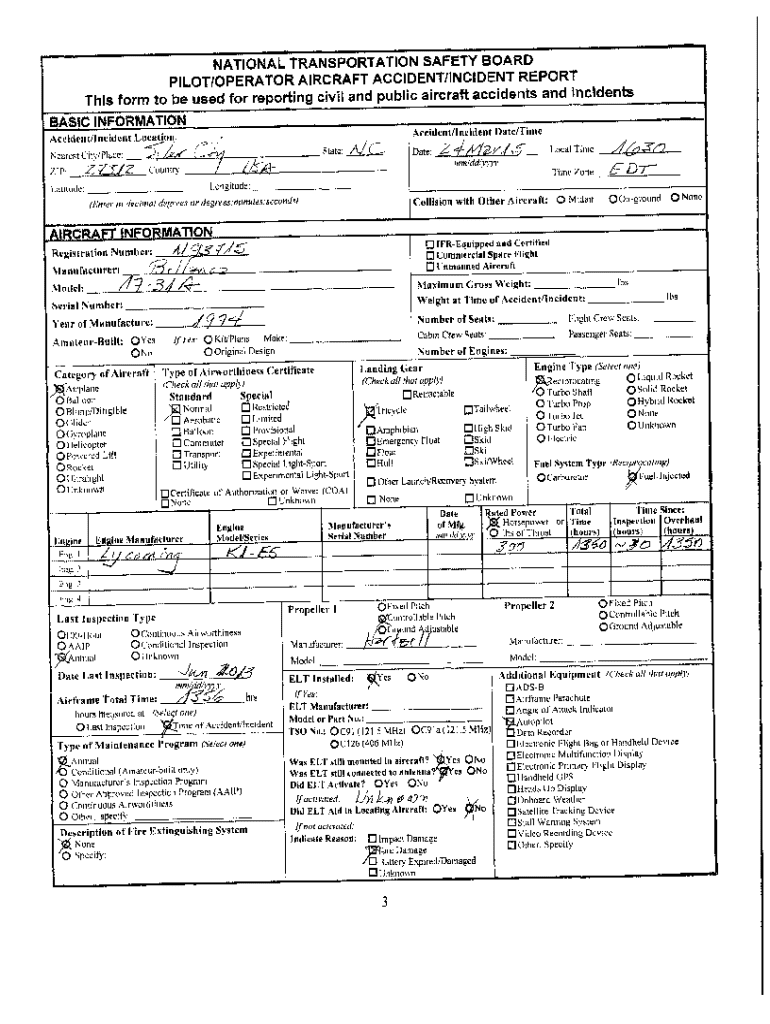 NATIONAL TRANSPORTATION SAFETY BOARD
PILOT/OPERATOR AIRCRAFT ACCIDENT/INCIDENT REPORT
This form to be used for reporting civil and public aircraft accidents and incidents
BASIC INFORMATION
Accident/Incident Location
Nearest City/Place: Siler City State: NC
ZIP: 27312 Country USA
Latitude: Longitude:
(Enter in decimal degrees or degrees:minutes:seconds)
Accident/Incident Date/Time
Date: 24 Mar 15 Local Time 1630
mm/dd/yyyy Time Zone EDT
Collision with Other Aircraft: Midair On-ground None
AIRCRAFT INFORMATION
Registration Number: N93715
Manufacturer: Bellanca
Model: 17-31A
Serial Number:
Year of Manufacture: 1974
Amateur-Built: Yes If yes Kit/Plans Make:
No Original Design
IFR-Equipped and Certified
Commercial Space Flight
Unmanned Aircraft
Maximum Gross Weight: lbs
Weight at Time of Accident/Incident: lbs
Number of Seats: Flight Crew Seats:
Cabin Crew Seats: Passenger Seats:
Number of Engines:
Category of Aircraft
Airplane
Balloon
Blimp/Dirigible
Glider
Gyroplane
Helicopter
Powered Lift
Rocket
Ultralight
Unknown
Type of Airworthiness Certificate
(Check all that apply)
Standard Special
Normal Restricted
Aerobatic Limited
Balloon Provisional
Commuter Special Flight
Transport Experimental
Utility Special Light-Sport
Experimental Light-Sport
Certificate of Authorization or Waiver (COA)
None Unknown
Landing Gear
(Check all that apply)
Retractable
Tricycle Tailwheel
Amphibian High Skid
Emergency Float Skid
Float Ski
Hull Ski/Wheel
Other Launch/Recovery System
None Unknown
Engine Type (Select one)
Reciprocating Liquid Rocket
Turbo Shaft Solid Rocket
Turbo Prop Hybrid Rocket
Turbo Jet None
Turbo Fan Unknown
Electric
Fuel System Type (Reciprocating)
Carburetor Fuel-Injected
Engine Engine Manufacturer Engine Model/Series Manufacturer's Serial Number Date of Mfg. mm/dd/yyyy Rated Power Horsepower or lbs of Thrust Total Time (hours) Time Since: Inspection (hours) Overhaul (hours)
Eng. 1 Lycoming K1-E5 300 1350 ~30 1350
Eng. 2
Eng. 3
Eng. 4
Last Inspection Type
100-Hour Continuous Airworthiness
AAIP Conditional Inspection
Annual Unknown
Date Last Inspection: Jun 2013
mm/dd/yyyy
Airframe Total Time: 1356 hrs
hours measured at (Select one)
Last Inspection Time of Accident/Incident
Type of Maintenance Program (Select one)
Annual
Conditional (Amateur-built only)
Manufacturer's Inspection Program
Other Approved Inspection Program (AAIP)
Continuous Airworthiness
Other, specify
Description of Fire Extinguishing System
None
Specify:
Propeller 1 Fixed Pitch
Controllable Pitch
Ground Adjustable
Manufacturer: Hartzell
Model
Propeller 2 Fixed Pitch
Controllable Pitch
Ground Adjustable
Manufacturer:
Model:
ELT Installed: Yes No
If Yes:
ELT Manufacturer:
Model or Part No.:
TSO No.: C91 (121.5 MHz) C91a (121.5 MHz)
C126 (406 MHz)
Was ELT still mounted in aircraft? Yes No
Was ELT still connected to antenna? Yes No
Did ELT Activate? Yes No
If activated: Unknown
Did ELT Aid in Locating Aircraft: Yes No
If not activated:
Indicate Reason: Impact Damage
Fire Damage
Battery Expired/Damaged
Unknown
Additional Equipment (Check all that apply)
ADS-B
Airframe Parachute
Angle of Attack Indicator
Autopilot
Data Recorder
Electronic Flight Bag or Handheld Device
Electronic Multifunction Display
Electronic Primary Flight Display
Handheld GPS
Heads Up Display
Onboard Weather
Satellite Tracking Device
Stall Warning System
Video Recording Device
Other, Specify
3